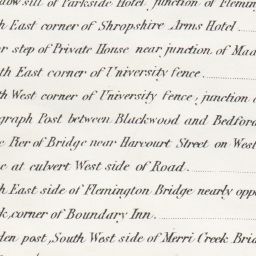 sill of Parkside Hotel, junction of Fleming
th East corner of Shropshire Arms Hotel
r step of Private House near junction of Mad
th East corner of University fence
th West corner of University fence; junction
graph Post between Blackwood and Bedford
e Pier of Bridge near Harcourt Street on West
e at culvert West side of Road
h East side of Flemington Bridge nearly oppo
k, corner of Boundary Inn
den post, South West side of Merri Creek Brid